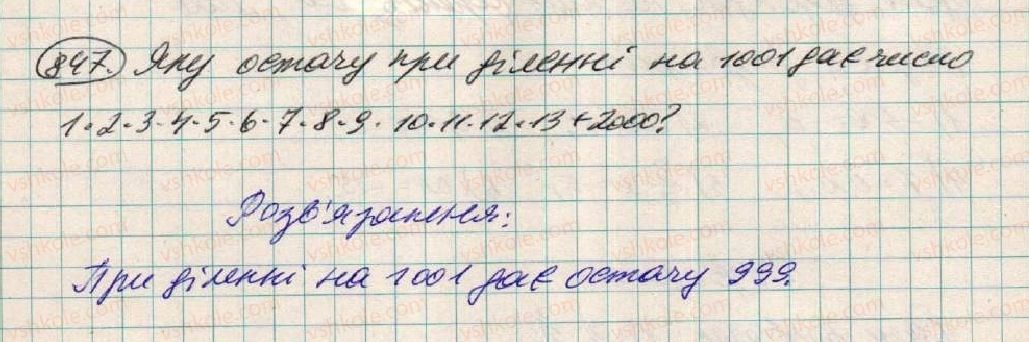 847. Яку остачу при діленні на 1001 дає число
1·2·3·4·5·6·7·8·9·10·11·12·13+2000?
Розв'язання:
При діленні на 1001 дає остачу 999.